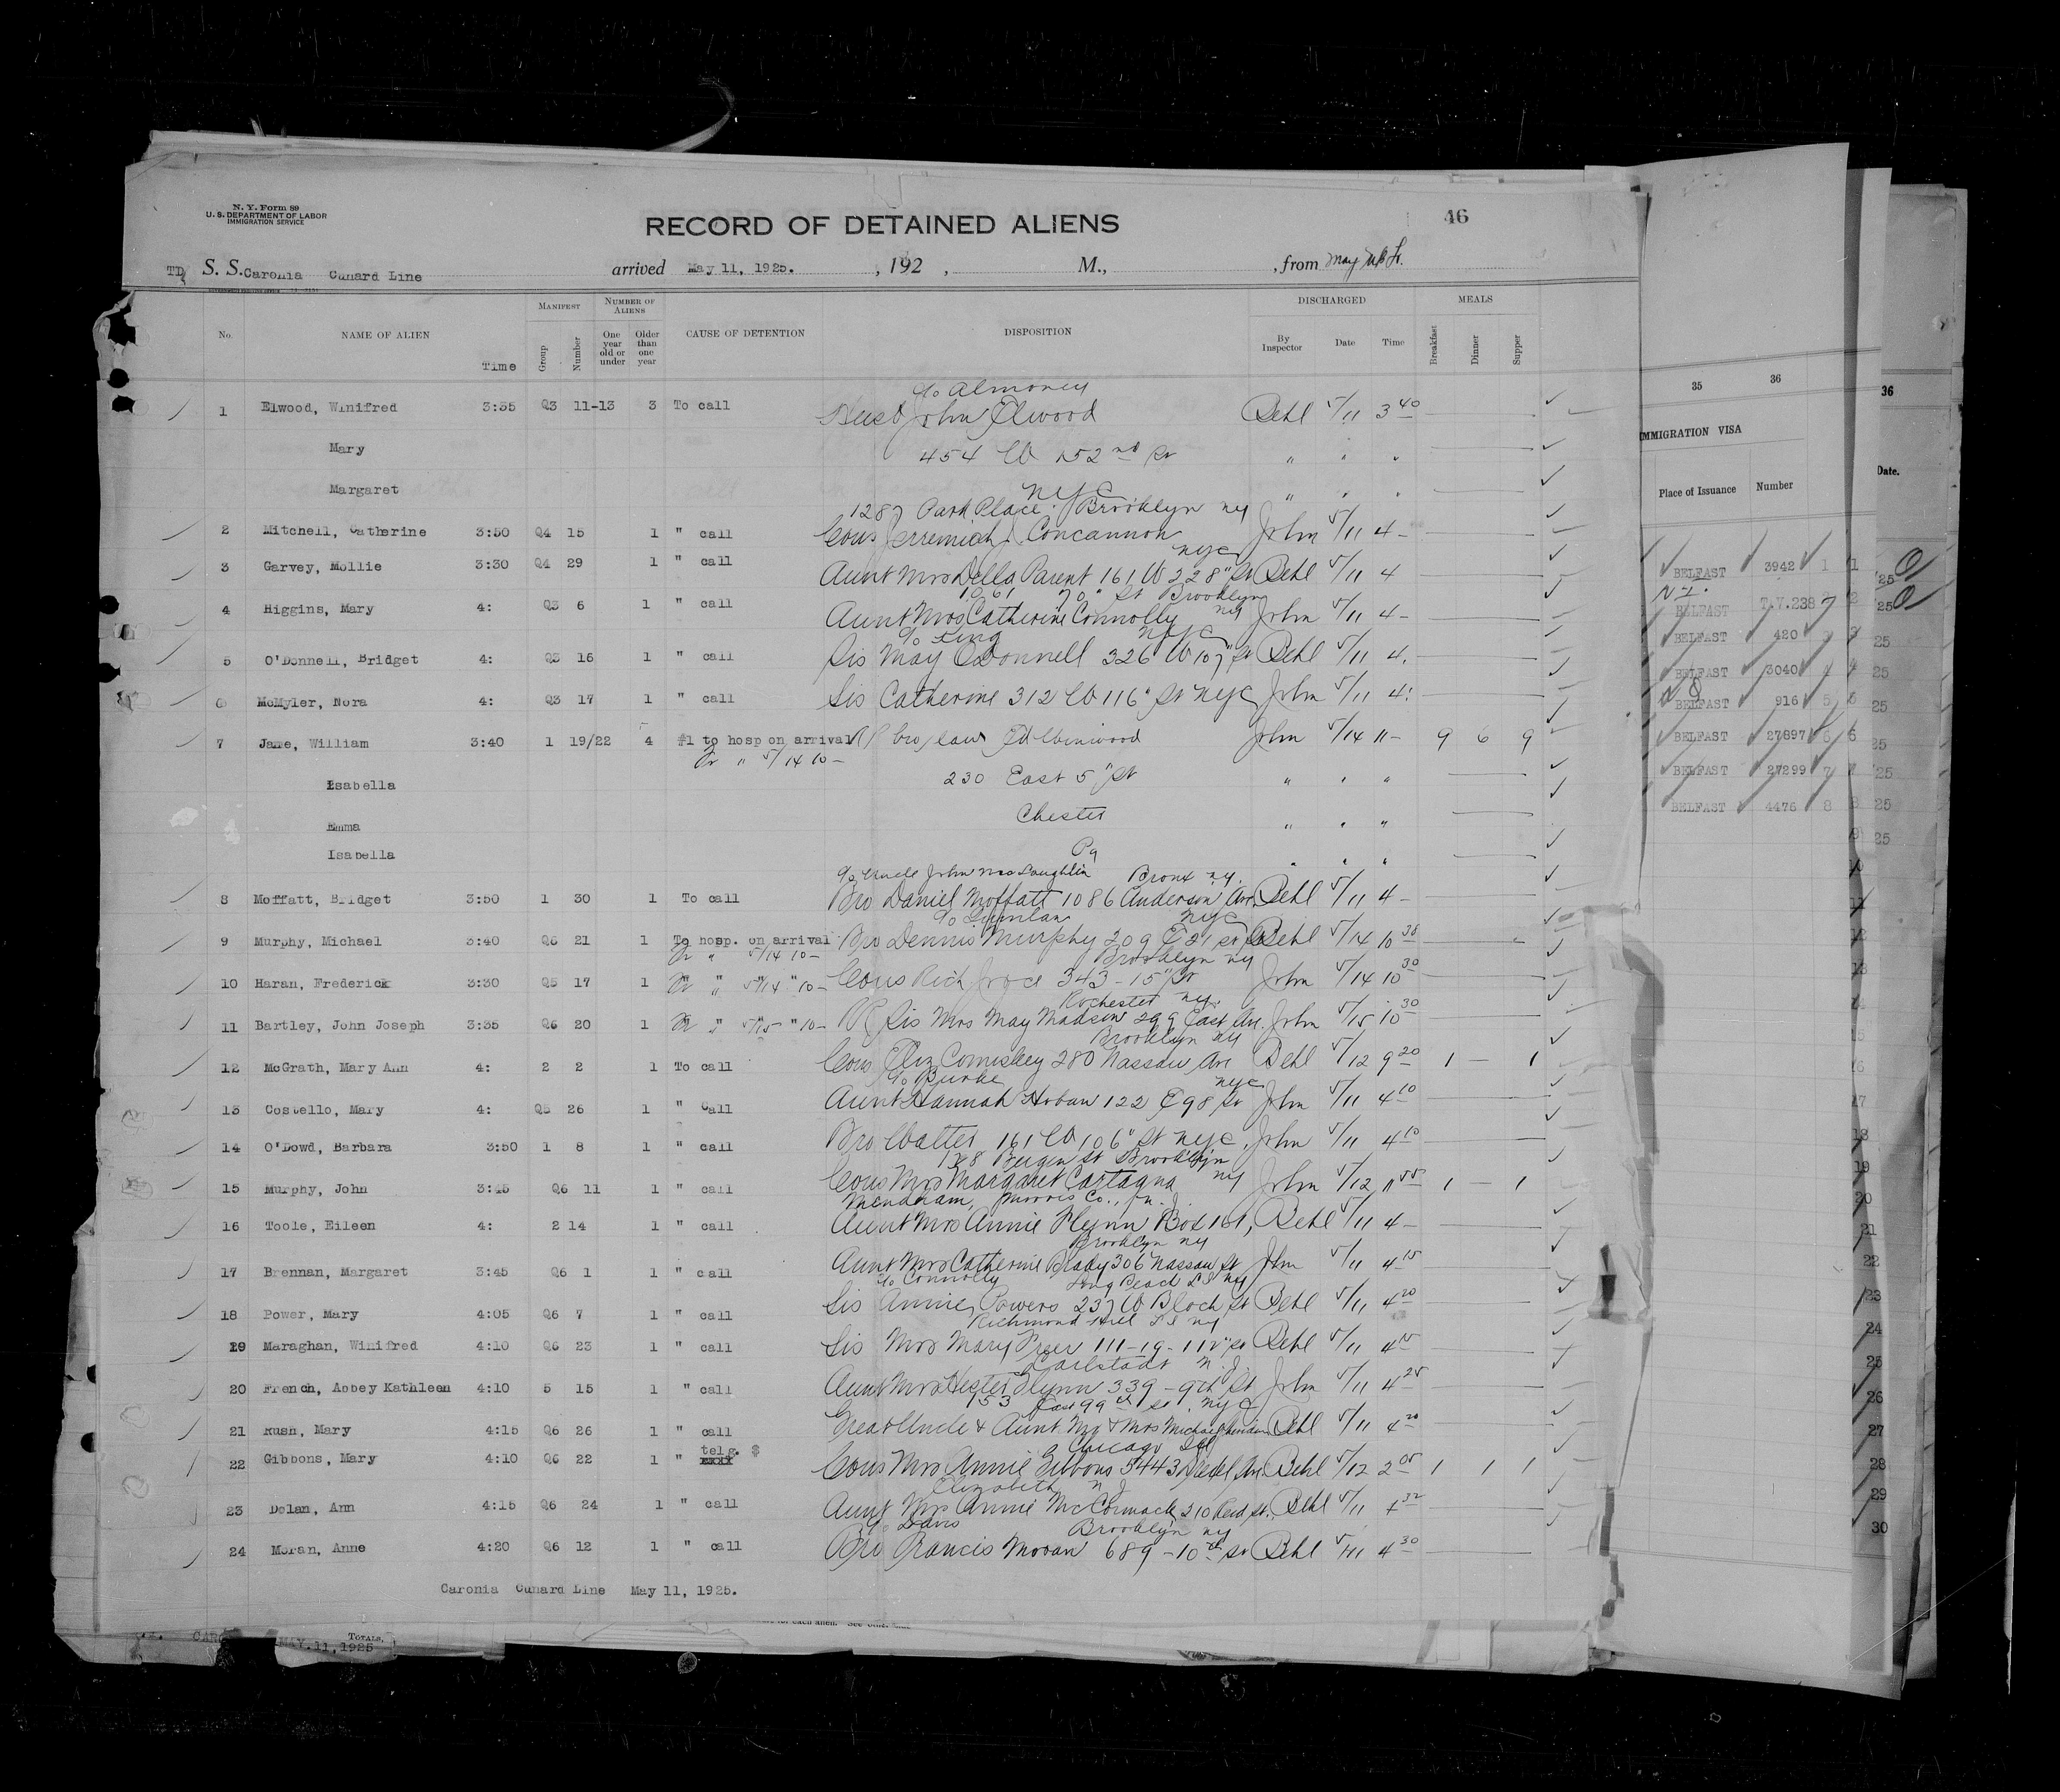 N. Y. Form 89
U. S. DEPARTMENT OF LABOR
IMMIGRATION SERVICE
RECORD OF DETAINED ALIENS
46
TD S. S. Caronia Cunard Line arrived May 11, 1925. , 192 , M., , from May
No. NAME OF ALIEN Time MANIFEST Group Number NUMBER OF ALIENS One year old or under Older than one year CAUSE OF DETENTION DISPOSITION DISCHARGED By Inspector Date Time MEALS Breakfast Dinner Supper
c/o Almoney
1 Elwood, Winifred 3:35 Q3 11-13 3 To call Husb John Elwood Behl 5/11 3 40
Mary 454 W 152nd St " " "
Margaret NYC " " "
1287 Park Place Brooklyn NY
2 Mitchell, Catherine 3:50 Q4 15 1 " call Cous Jerremiah J. Concannon John 5/11 4 -
NYC
3 Garvey, Mollie 3:30 Q4 29 1 " call Aunt Mrs Della Parent 161 W 228" St Behl 5/11 4
1061 70" St Brooklyn
4 Higgins, Mary 4: Q3 6 1 " call Aunt Mrs Catherine Connolly NY John 5/11 4 -
c/o King NYC
5 O'Donnell, Bridget 4: Q3 16 1 " call Sis May O'Donnell 326 W 107" St Behl 5/11 4.
6 McMyler, Nora 4: Q3 17 1 " call Sis Catherine 312 W 116" St NYC John 5/11 4:
7 Jane, William 3:40 1 19/22 4 #1 to hosp on arrival bro/law Ed John 5/14 11 - 9 6 9
Fr " 5/14 10 -
Isabella 230 East 5" St " " "
Emma Chester " " "
Isabella Pa " " "
c/o Uncle John McLaughlin Bronx NY.
8 Moffatt, Bridget 3:50 1 30 1 To call Bro Daniel Moffatt 1086 Anderson Ave Behl 5/11 4 -
c/o Quinlan NYC
9 Murphy, Michael 3:40 Q6 21 1 To hosp. on arrival Bro Dennis Murphy 209 E 21 St Behl 5/14 10 38
Fr " 5/14 10 - Brooklyn NY
10 Haran, Frederick 3:30 Q5 17 1 Fr " 5/14 " 10 - Cous Rich Joyce 343 - 15" St John 5/14 10 30
Rochester NY.
11 Bartley, John Joseph 3:35 Q6 20 1 Fr " 5/15 " 10 - Sis Mrs May Madsen 299 East Ave. John 5/15 10 30
Brooklyn NY
12 McGrath, Mary Ann 4: 2 2 1 To call Cous Eliz Comiskey 280 Nassau Ave Behl 5/12 9 20 1 - 1
c/o Burke NYC
13 Costello, Mary 4: Q5 26 1 " Call Aunt Hannah Hoban 122 E 98 St John 5/11 4 10
14 O'Dowd, Barbara 3:50 1 8 1 " call Bro Walter 161 W 106" St NYC John 5/11 4 10
Bergen St Brooklyn
15 Murphy, John 3:45 Q6 11 1 " call Cous Mrs Margaret Castagna NY John 5/12 11 55 1 - 1
Mendham, Morris Co., N. J.
16 Toole, Eileen 4: 2 14 1 " call Aunt Mrs Annie Flynn Box 161, Behl 5/11 4 -
Brooklyn NY
17 Brennan, Margaret 3:45 Q6 1 1 " call Aunt Mrs Catherine Brady 306 Nassau St John 5/11 4 15
c/o Connolly Long Beach LI NY
18 Power, Mary 4:05 Q6 7 1 " call Sis Annie Powers 237 W Bloch St Behl 5/11 4 20
Richmond Hill LI NY
19 Maraghan, Winifred 4:10 Q6 23 1 " call Sis Mrs Mary 111-19-112" St Behl 5/11 4 15
Carlstadt N. J.
20 French, Abbey Kathleen 4:10 5 15 1 " call Aunt Mrs Hester Flynn 339 - 9th St John 5/11 4 25
153 East 99th St. NYC
21 Rush, Mary 4:15 Q6 26 1 " call Great Uncle & Aunt Mr & Mrs Michael Behl 5/11 4 20
Chicago Ill
22 Gibbons, Mary 4:10 Q6 22 1 " telg. $ Cous Mrs Annie Gibbons 5443 Ave. Behl 5/12 2 05 1 1 1
Elizabeth N J
23 Dolan, Ann 4:15 Q6 24 1 " call Aunt Mrs Annie McCormack 210 Reid St. Behl 5/11 4 32
c/o Davis Brooklyn NY
24 Moran, Anne 4:20 Q6 12 1 " call Bro Francis Moran 689 - 10th St Behl 5/11 4 30
Caronia Cunard Line May 11, 1925.
TOTALS,
MAY.11,1925
35 36
IMMIGRATION VISA
Place of Issuance Number
BELFAST 3942 1
N I.
BELFAST T.V.238 2
BELFAST 420 3
BELFAST 3040 4
BELFAST 916 5
BELFAST 27897 6
BELFAST 27299 7
BELFAST 4476 8
36
Date.